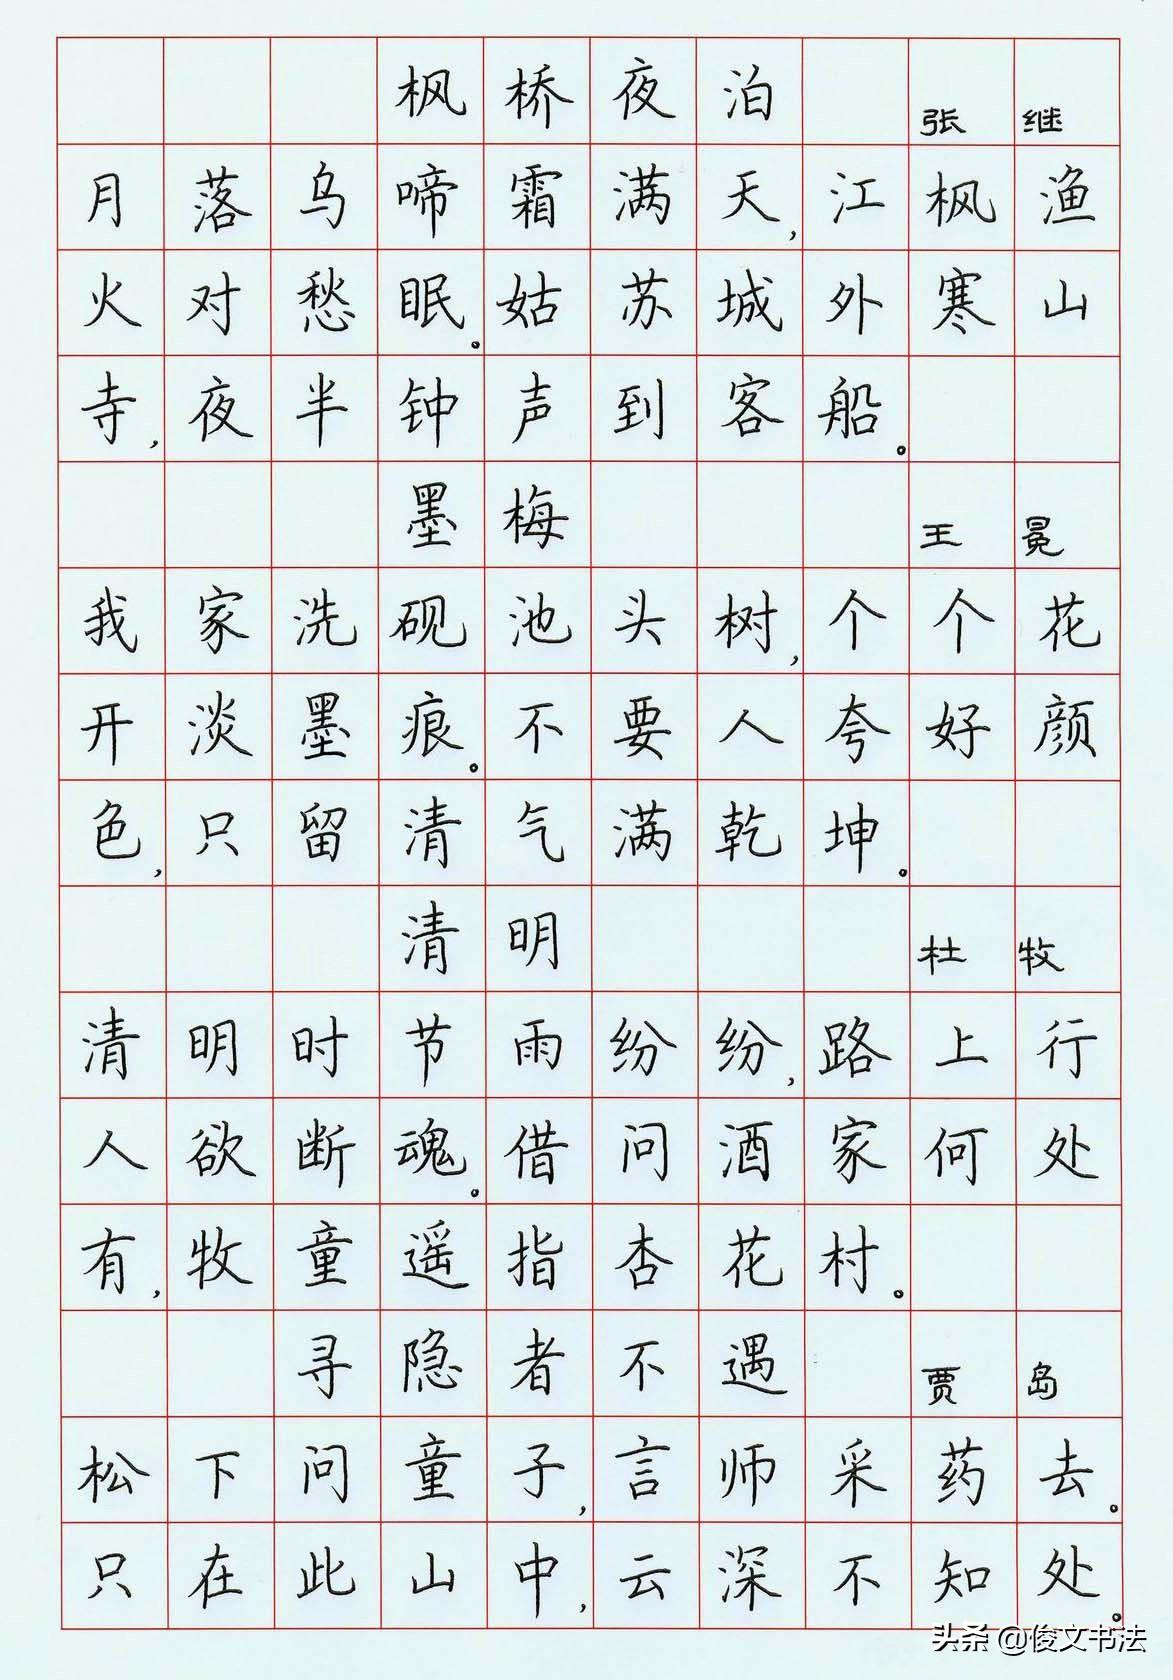 枫桥夜泊 张继
月落乌啼霜满天,江枫渔
火对愁眠。姑苏城外寒山
寺,夜半钟声到客船。
墨梅 王冕
我家洗砚池头树,个个花
开淡墨痕。不要人夸好颜
色,只留清气满乾坤。
清明 杜牧
清明时节雨纷纷,路上行
人欲断魂。借问酒家何处
有,牧童遥指杏花村。
寻隐者不遇 贾岛
松下问童子,言师采药去。
只在此山中,云深不知处。
头条 @俊文书法